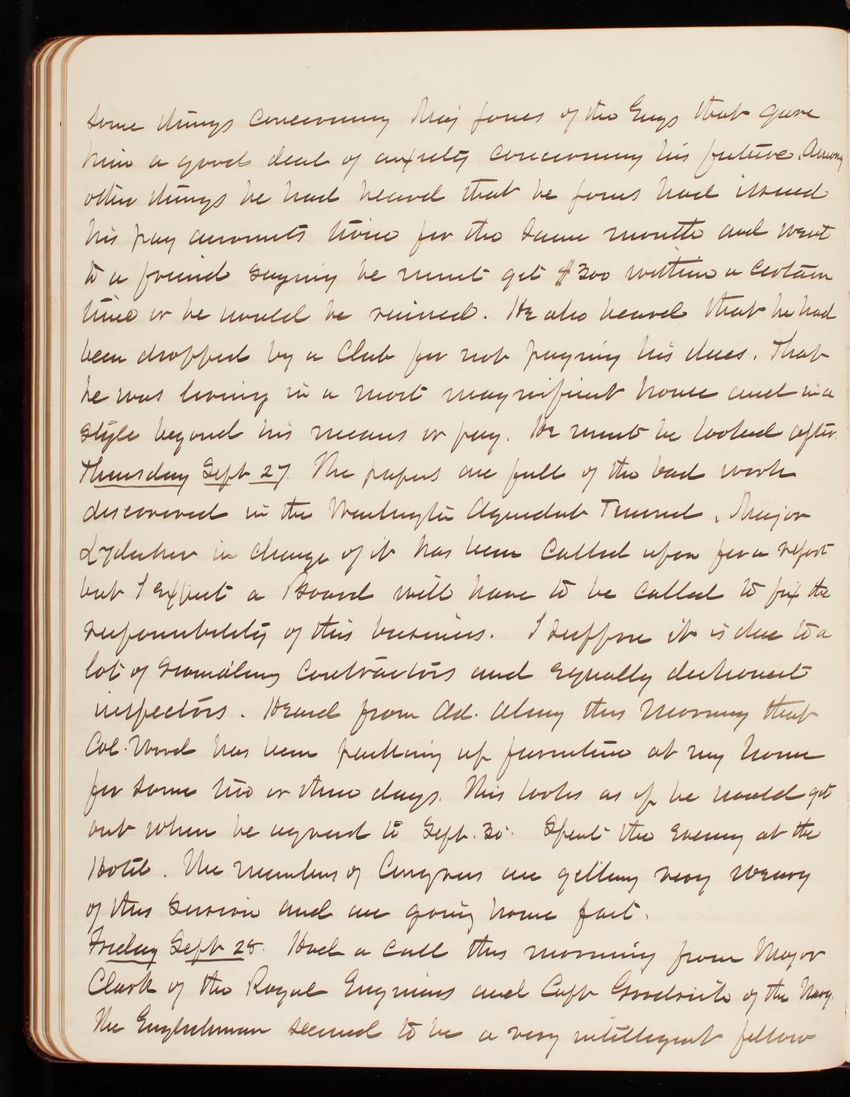 some things concerning Maj Jones of the Engs that gave
him a good deal of anxiety concerning his future. Among
other things he had heard that he Jones had issued
his pay accounts twice for the same month and went
to a friend saying he must get $300 within a certain
time or he would be ruined. He also heard that he had
been dropped by a Club for not paying his dues. That
he was living in a most magnificent house and in a
style beyond his means or pay. He must be looked after.
Thursday Sept 27. The papers are full of the bad work
discovered in the Washington Aqueduct Tunnel. Major
Lydecker in charge of it has been called upon for a report
but I expect a Board will have to be called to fix the
responsibility of this business. I suppose it is due to a
lot of scoundrelly contractors and equally dishonest
inspectors. Heard from this morning that
Col. Wood has been packing up furniture at my house
for some two or three days. This looks as if he would get
out when he agreed to Sept. 30. Spent the evening at the
Hotel. The members of Congress are getting very weary
of this session and are going home fast.
Friday Sept 28. Had a call this morning from Major
Clark of the Royal Engineers and Capt of the Navy.
The Englishman seemed to be a very intelligent fellow